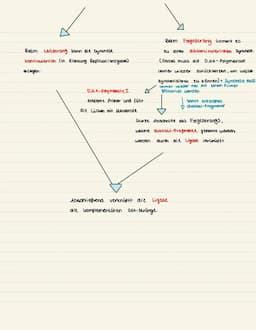 Beim Leitstrang kann die Synthese
kontinuierlich (in Richtung Replikationsgabel)
erfolgen
Beim Folgestrang kommt es
zu einer diskontinuierlichen Synthese
(Dieses muss die DNA-Polymerase
immer wieder zurückkehren, um weiter
synthetisieren zu können) + Synthese muss
immer wieder neu mit einem Primer
DNA-Polymerase I
entfernt Primer und füllt
die Lücken mit
somit entstehen
Okazaki-Fragmente
Durch
welche Okazaki-Fragmente genannt werden
werden durch die Ligase verknüpft
Abschließend verknüpft die Ligase
die komplementären DNA-Stränge